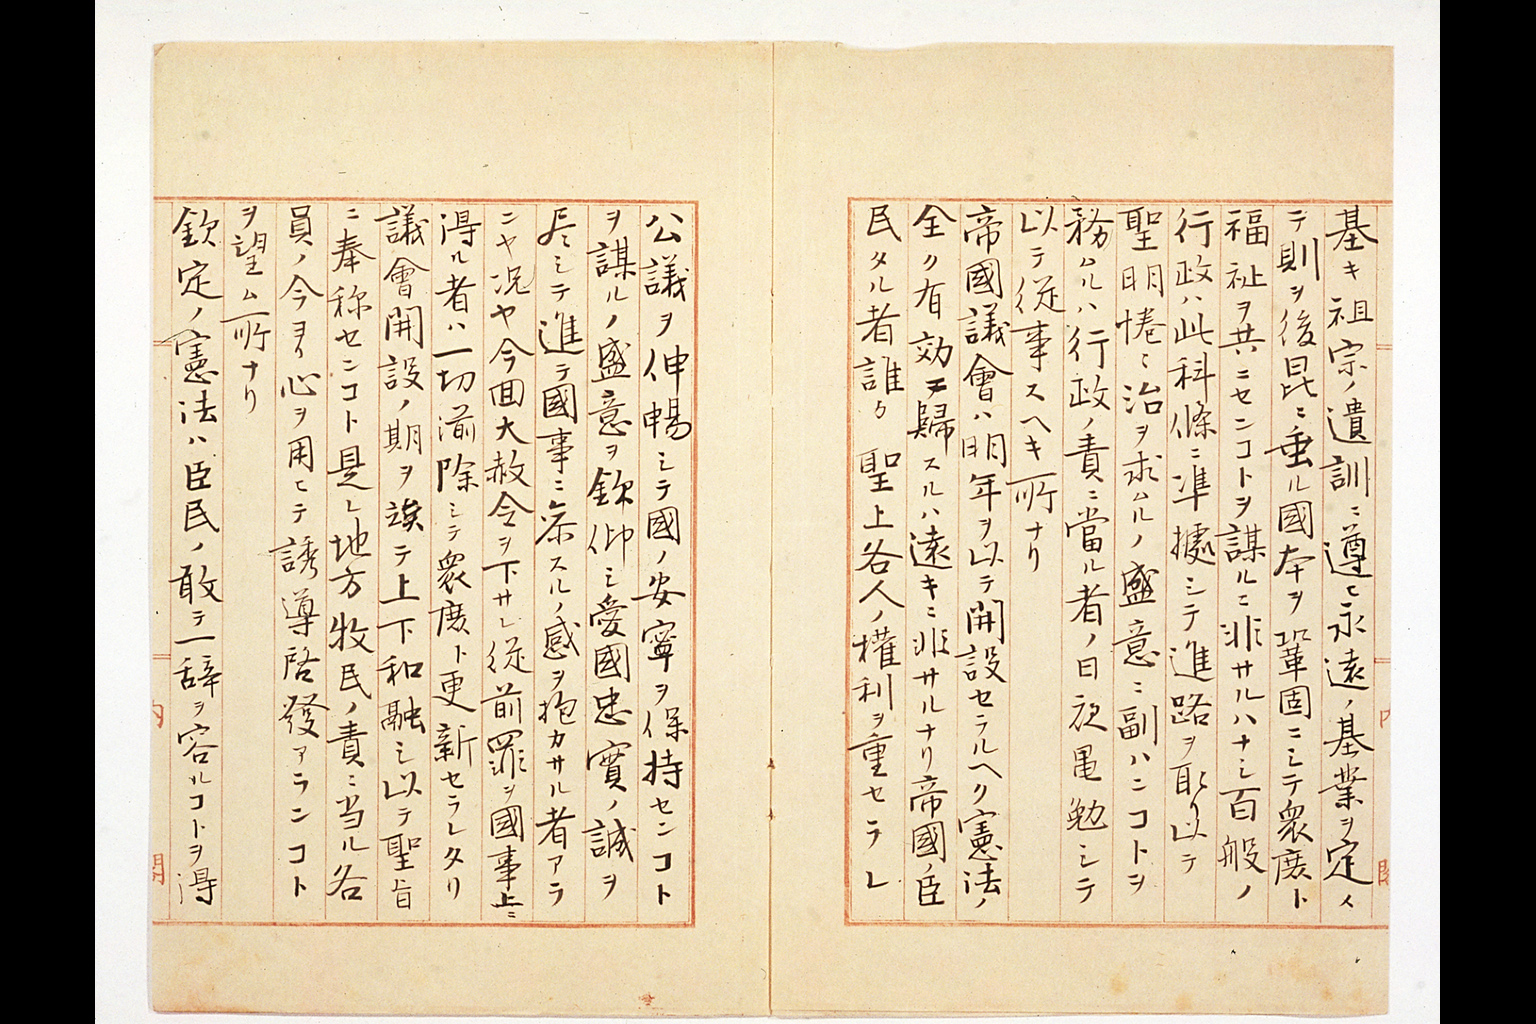 基キ祖宗ノ遺訓ニ遵ヒ永遠ノ基業ヲ定メ
テ則ヲ後昆ニ垂ル國本ヲ鞏固ニシテ衆庶ト
福祉ヲ共ニセンコトヲ謀ルニ非サルハナシ百般ノ
行政ハ此科條ニ準據シテ進路ヲ取リ以テ
聖明惓〻治ヲ求ムルノ盛意ニ副ハンコトヲ
務ムルハ行政ノ責ニ當ル者ノ日夜黽勉シテ
以テ從事スヘキ所ナリ
帝國議會ハ明年ヲ以テ開設セラルヘク憲法ノ
全ク有効ニ歸スルハ遠キニ非サルナリ帝國ノ臣
民タル者誰カ 聖上各人ノ權利ヲ重セラレ
公議ヲ伸暢シテ國ノ安寧ヲ保持センコト
ヲ謀ルノ盛意ヲ欽仰シ愛國忠實ノ誠ヲ
尽シテ進テ國事ニ參スルノ感ヲ抱カサル者アラ
ンヤ況ヤ今回大赦令ヲ下サレ從前罪ヲ國事上ニ
得ル者ハ一切湔除シテ衆庶ト更新セラレタリ
議會開設ノ期ヲ竢テ上下和融シ以テ聖旨
ニ奉称センコト是レ地方牧民ノ責ニ当ル各
員ノ今ヨリ心ヲ用ヒテ誘導啓發アランコト
ヲ望ム所ナリ
欽定ノ憲法ハ臣民ノ敢テ一辞ヲ容ルコトヲ得
内
閣